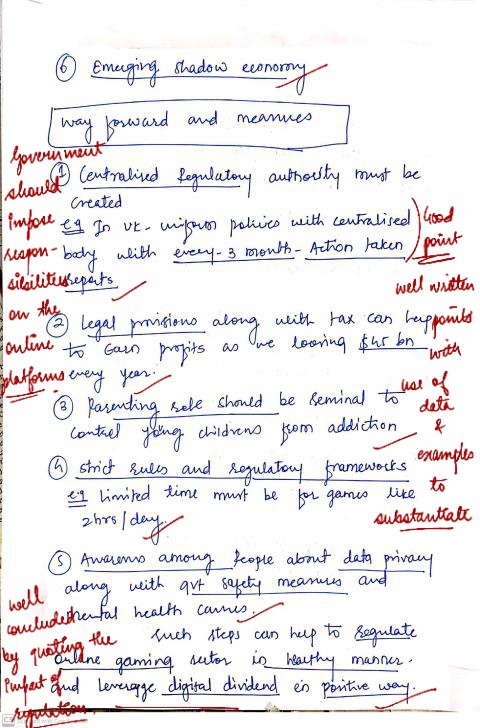 ⑥ Emerging shadow economy
way forward and measures
Government
should
impose
respon-
sibilities
on the
online
platforms
① Centralised Regulatory authority must be
created
e.g In UK - uniform policies with centralised
body with every - 3 month - Action taken
reports
Good
point
② Legal provisions along with tax can help
to Earn profits as we loosing $45 bn
every year.
well written
points
with
use of
data
&
examples
to
substantiate
③ Parenting role should be seminal to
control young childrens from addiction
④ strict rules and regulatory frameworks
e.g limited time must be for games like
2hrs/day.
⑤ Awareness among people about data privacy
along with gvt safety measures and
mental health
such steps can help to regulate
online gaming sector in healthy manner.
and leverage digital dividend in positive way.
well
concluded
by quoting the
impact of
regulation